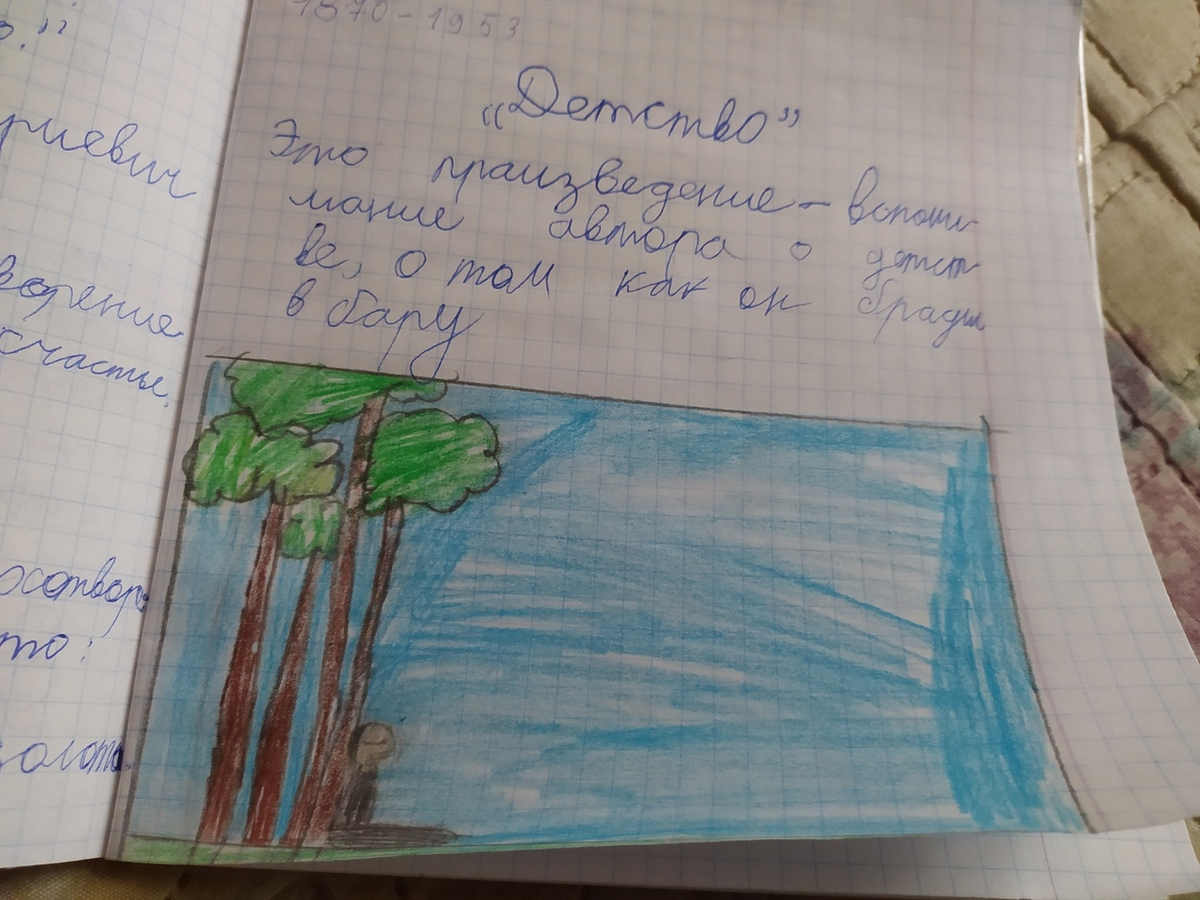 о."
риевич
ворение
счастье,
осотвор
то:
золота
1870-1953
„Детство”
Это произведение - вспоми
мание автора о детст
ве, о том как он бради
в бару